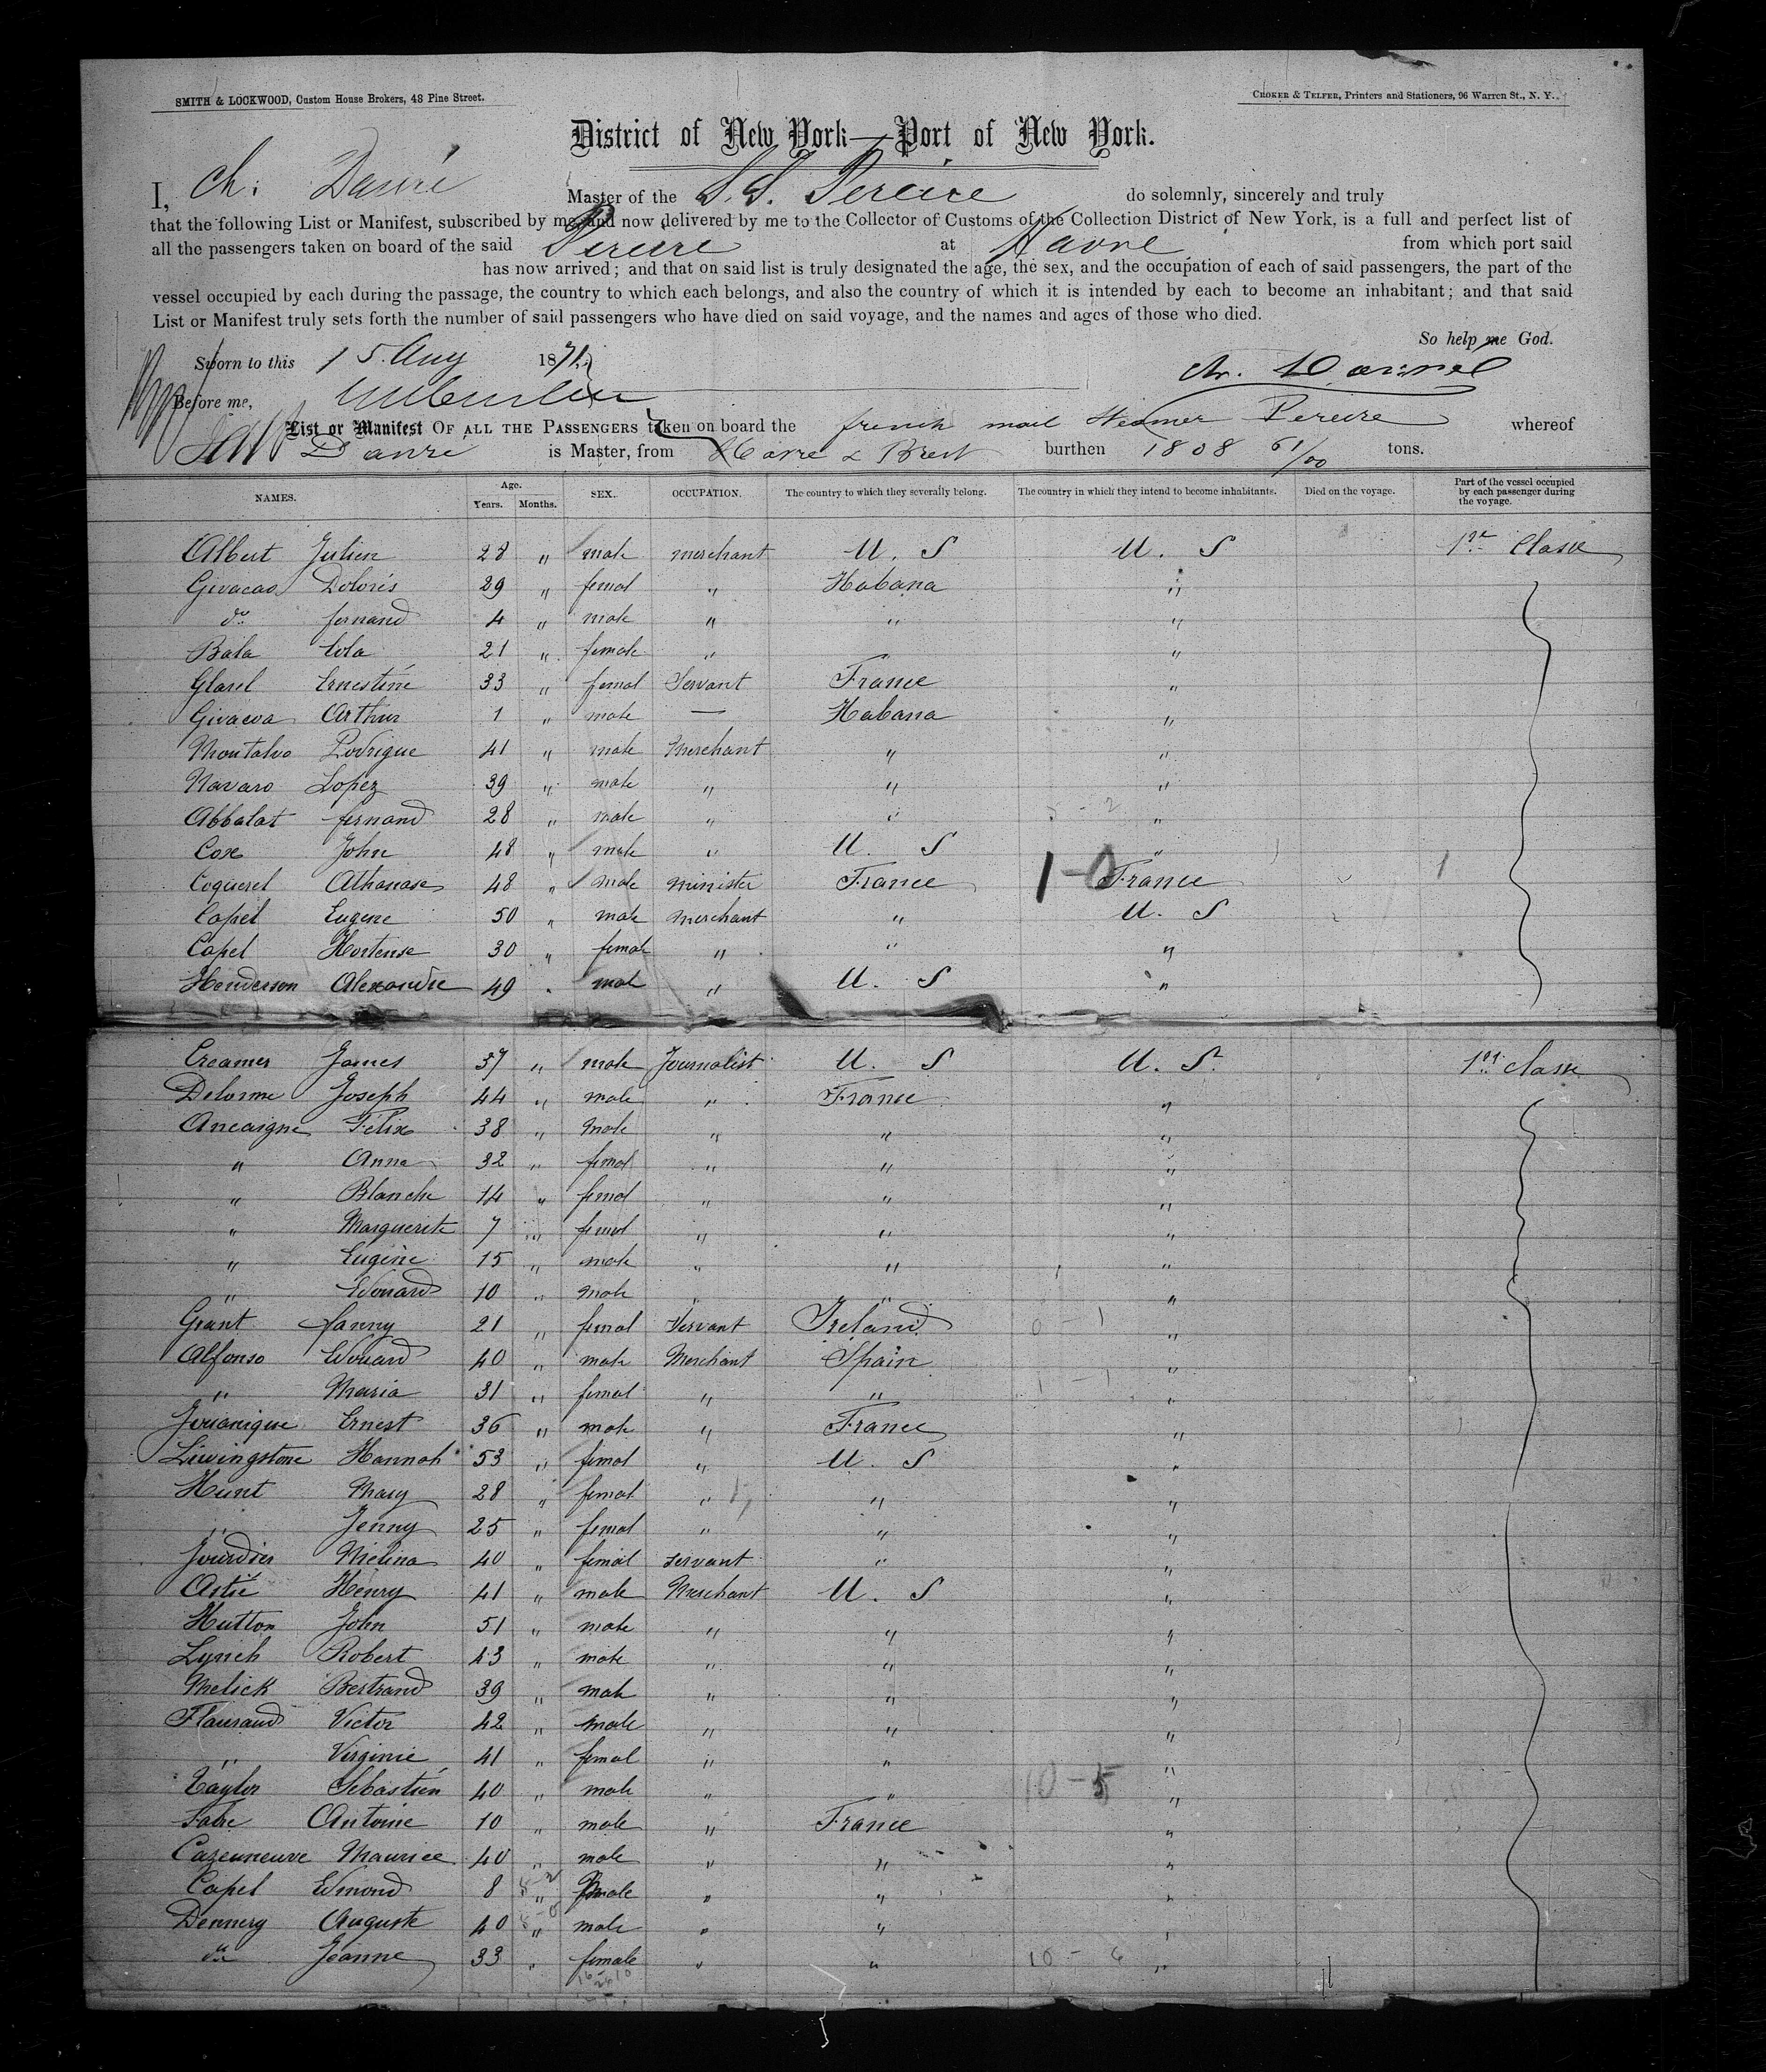 SMITH & LOCKWOOD, Custom House Brokers, 48 Pine Street.
CROKER & TELFER, Printers and Stationers, 96 Warren St., N. Y.
District of New York—Port of New York.
I, Ch. Daure Master of the S.S. Pereire do solemnly, sincerely and truly
that the following List or Manifest, subscribed by me, and now delivered by me to the Collector of Customs of the Collection District of New York, is a full and perfect list of
all the passengers taken on board of the said Pereire at Havre from which port said
has now arrived; and that on said list is truly designated the age, the sex, and the occupation of each of said passengers, the part of the
vessel occupied by each during the passage, the country to which each belongs, and also the country of which it is intended by each to become an inhabitant; and that said
List or Manifest truly sets forth the number of said passengers who have died on said voyage, and the names and ages of those who died.
So help me God.
Sworn to this 15 Aug 1871
Before me,
List or Manifest OF ALL THE PASSENGERS taken on board the french mail Steamer Pereire whereof
Danré is Master, from Havre & Brest burthen 1808 61/00 tons.
NAMES. Age. Years. Months. SEX. OCCUPATION. The country to which they severally belong. The country in which they intend to become inhabitants. Died on the voyage. Part of the vessel occupied by each passenger during the voyage.
Albert Julien 28 " male merchant U. S U. S 1re Classe
Givacao Dolorés 29 " femal " Habana "
do fernand 4 " male " " "
Bala Lola 21 " female " "
Glarel Ernestine 33 " femal Servant France "
Givacoa Arthur 1 " male — Habana "
Montalvo Rodrigue 41 " male Merchant " "
Navaro Lopez 39 " male " " "
Abbalat fernand 28 " male " " "
Cox John 48 " male " U. S "
Coquerel Athanase 48 " male minister France 1-0 France
Capel Eugene 50 " male merchant " U. S
Capel Hortense 30 " female " " "
Henderson Alexandre 49 " male " U. S "
Creamer James 37 " male Journalist U. S U. S. 1re classe
Delorme Joseph 44 " male " France "
Ancaigne Félix 38 " male " " "
" Anna 32 " femal " " "
" Blanche 14 " femal " " "
" Marguerite 7 " femal " " "
" Eugène 15 " male " " "
" Edouard 10 " male " " "
Grant fanny 21 " femal Servant Ireland 0 - 1 "
Alfonso Edouard 40 " male Merchant Spain "
" Maria 31 " femal " " 1 - 1 "
Jouanique Ernest 36 " male " France "
Liwingstone Hannah 53 " femal " U. S "
Hunt Mary 28 " femal " " "
" Jenny 25 " femal " " "
Jourdier Mélina 40 " femal servant " "
Astié Henry 41 " male Merchant U. S "
Hutton John 51 " male " " "
Lynch Robert 43 " male " " "
Melick Bertrand 39 " male " " "
Flauraud Victor 42 " male " " "
" Virginie 41 " femal " " "
Taylor Sebastien 40 " male " " 10 - 5 "
Fabre Antoine 10 " male " France "
Cazeuneuve Maurice 40 " male " " "
Capel Edmond 8 " male " " "
Dennery Auguste 40 " male " " "
do Jeanne 33 " female " " 10 - 6 "